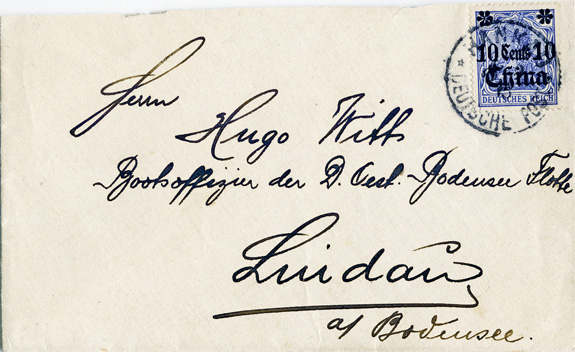 Herrn
Hugo Witts
Bootsoffizier der D. Oest. Bodensee Flotte
Lindau
a/ Bodensee.
10 Cents 10
China
DEUTSCHES REICH
DEUTSCHE